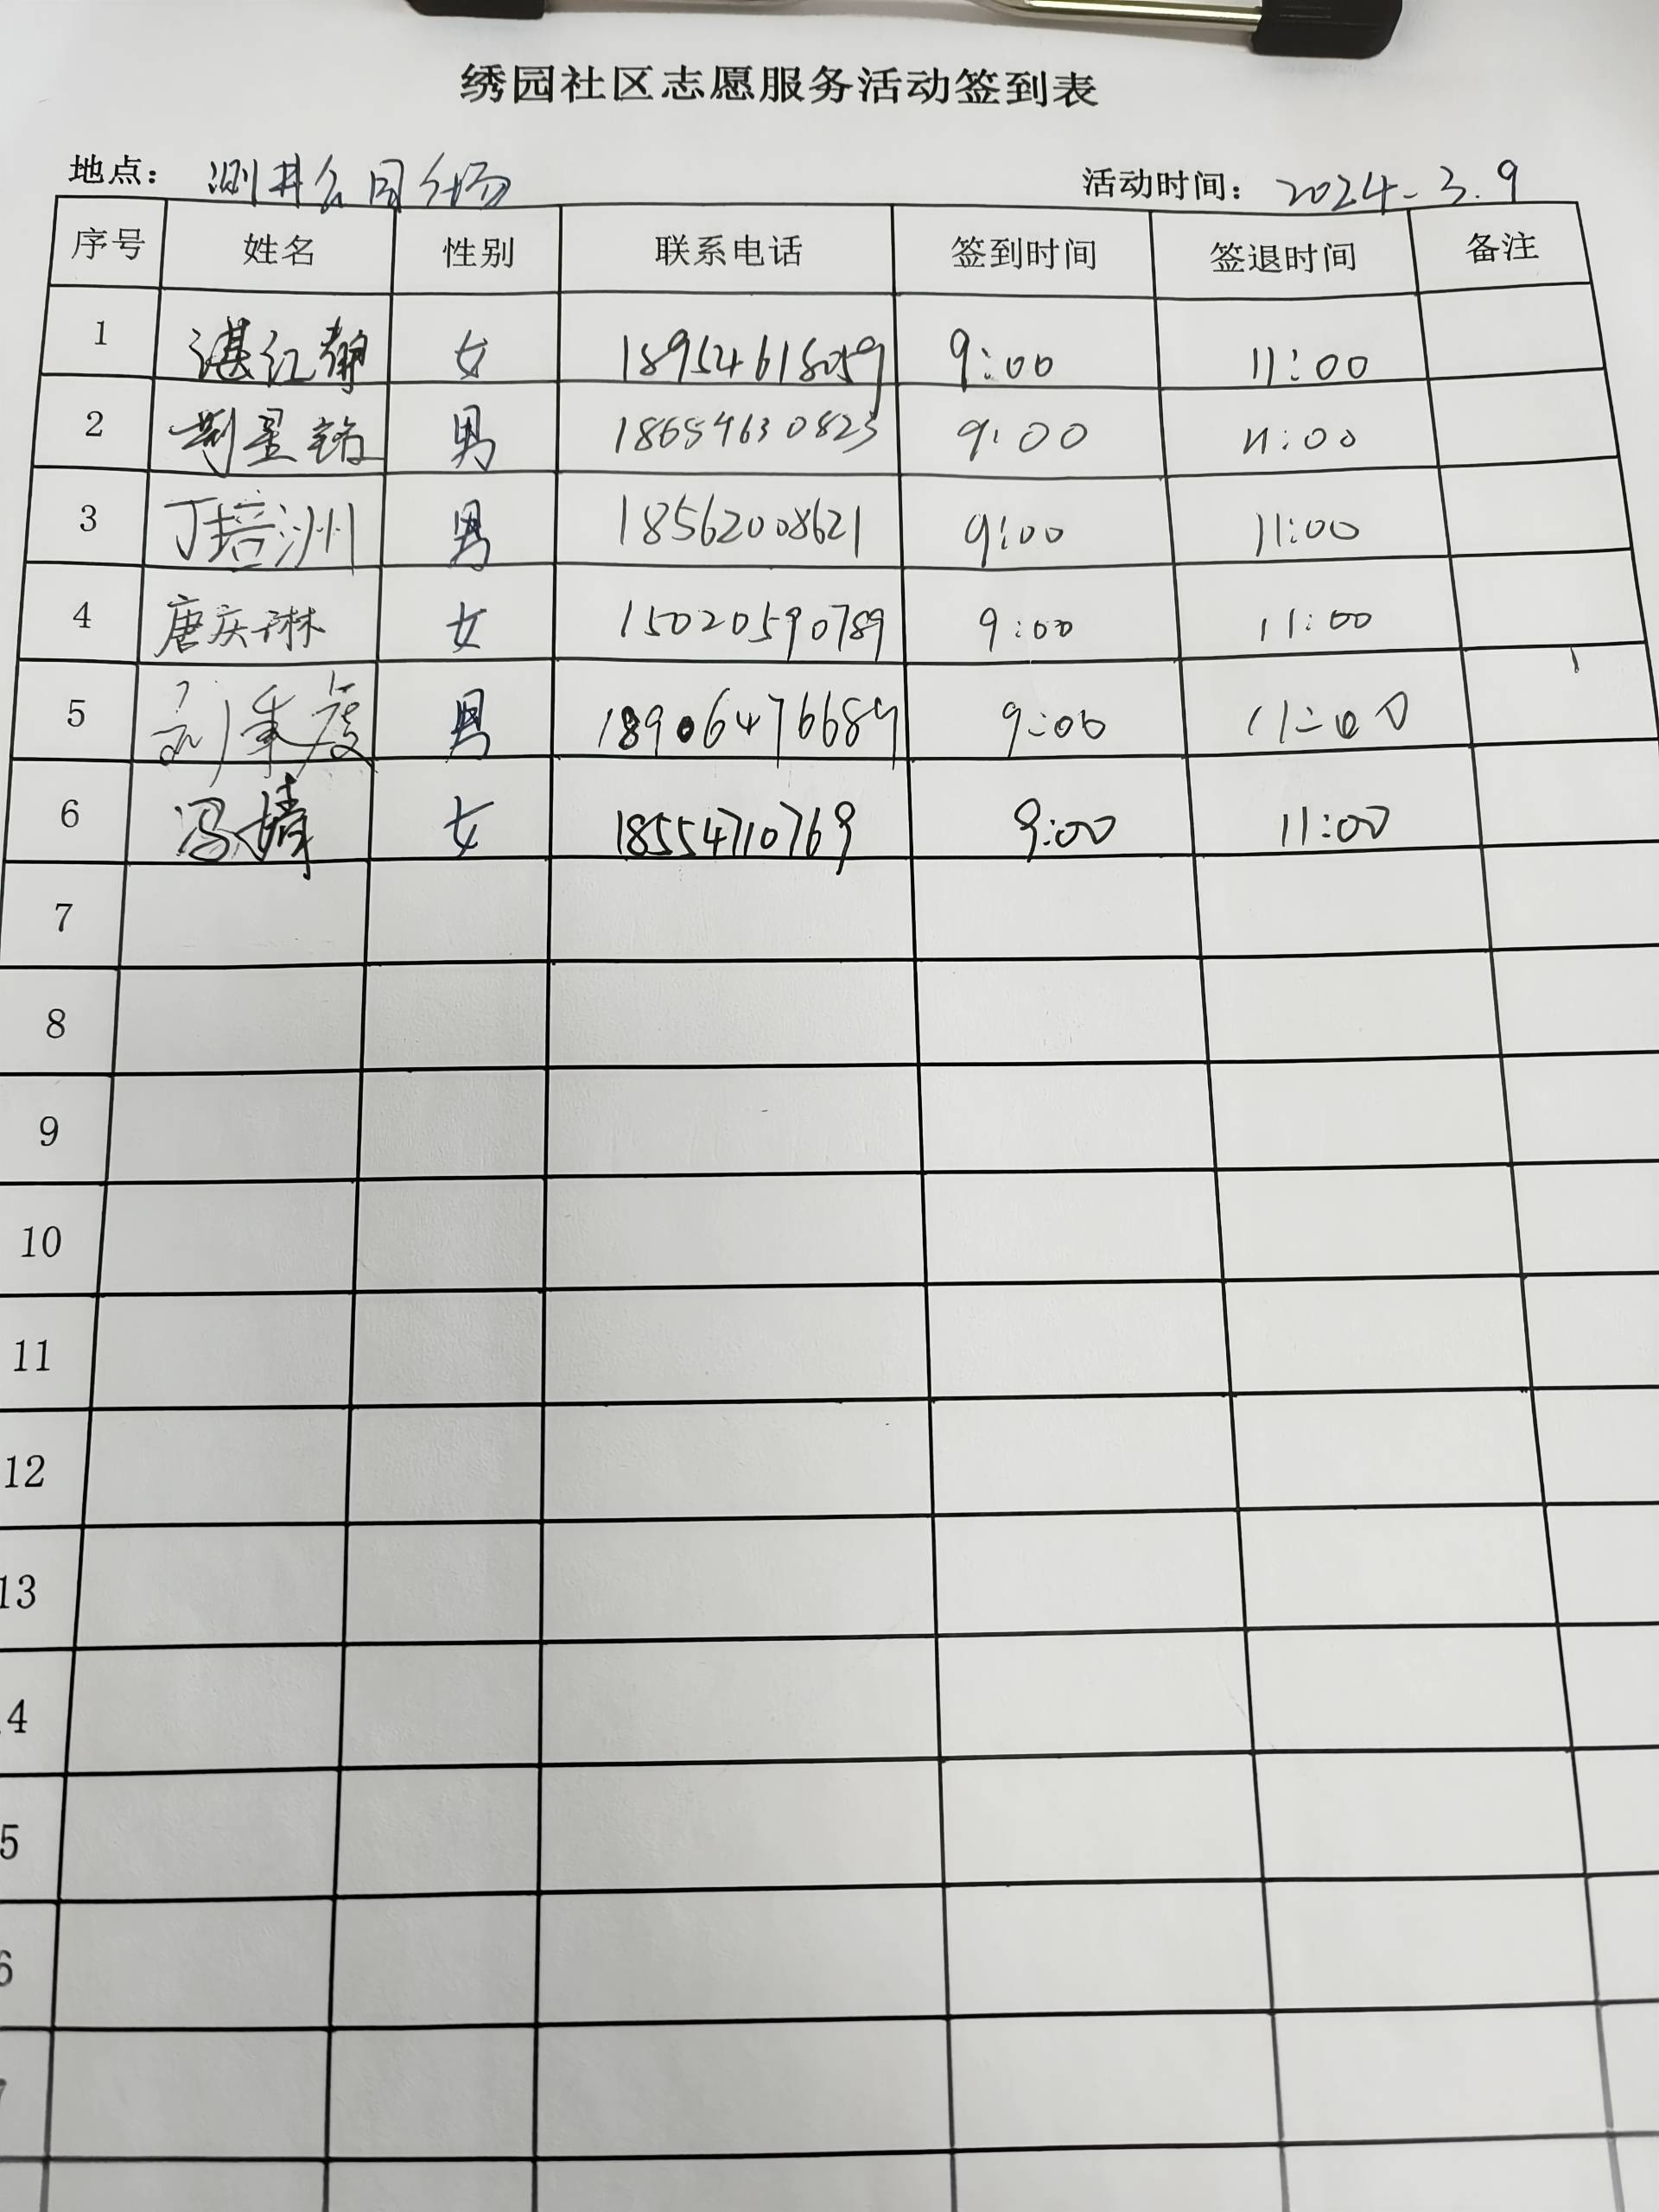 绣园社区志愿服务活动签到表
地点： 测井公园广场 活动时间： 2024-3.9
序号 姓名 性别 联系电话 签到时间 签退时间 备注
1 湛红静 女 18954618059 9:00 11:00
2 荆星铭 男 18654630823 9:00 11:00
3 丁培洲 男 18562008621 9:00 11:00
4 唐庆琳 女 15020590789 9:00 11:00
5 刘 男 18906476689 9:00 11:00
6 冯婧 女 18554710769 9:00 11:00
7
8
9
10
11
12
13
4
5
6
7